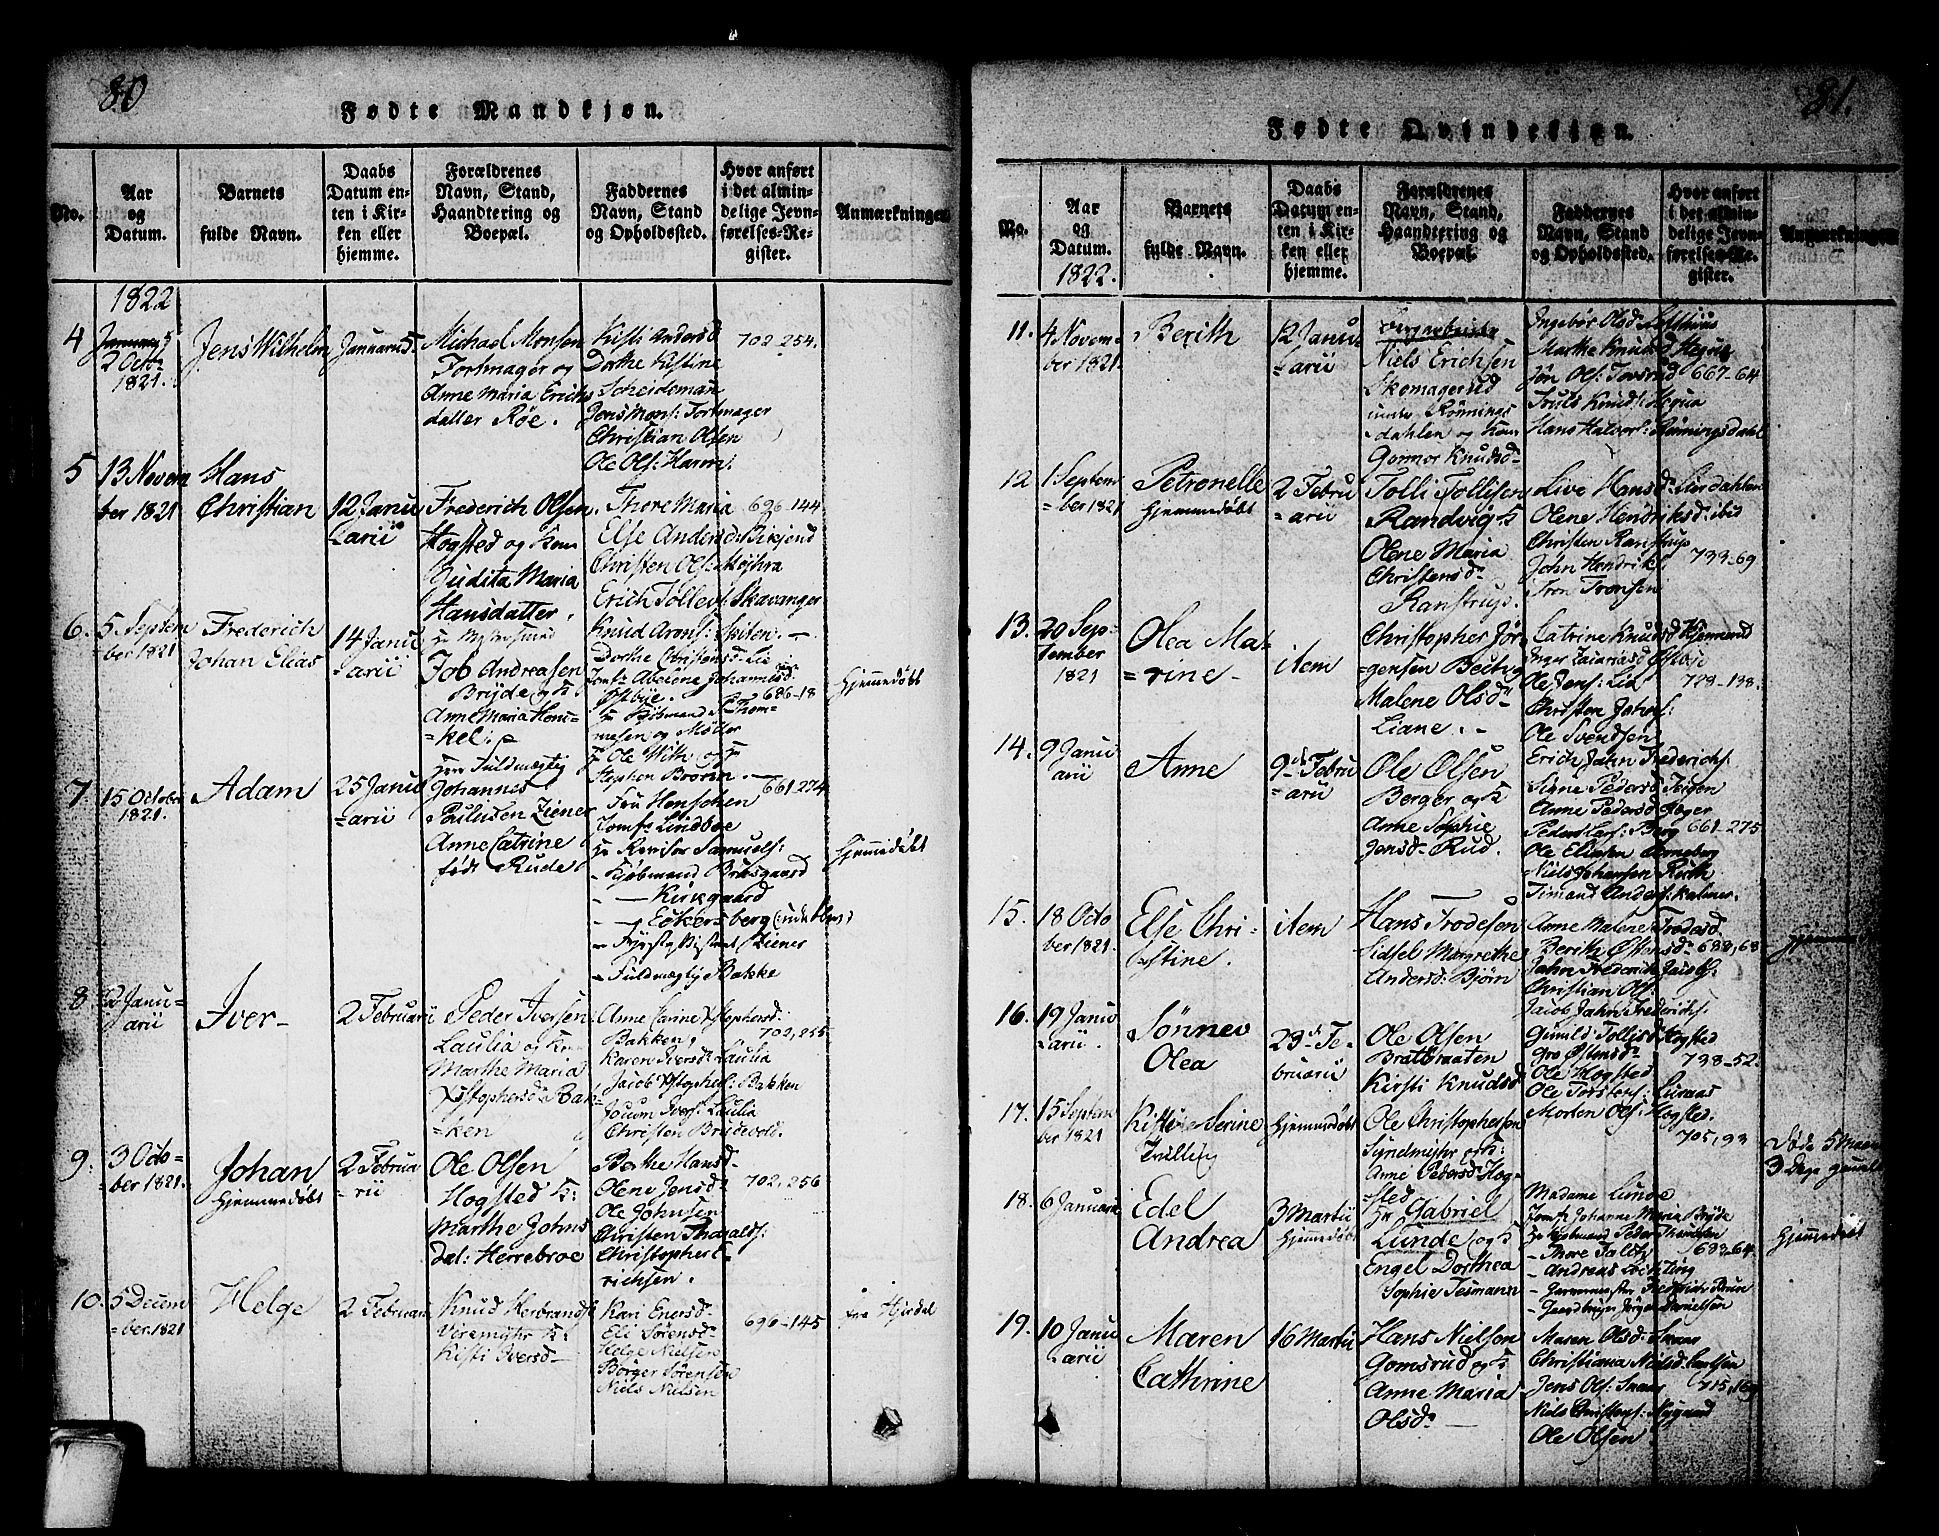 80
Fødte Mandkjøn.
No.
Aar og Datum.
Barnets fulde Navn.
Daabs Datum enten i Kirken eller hjemme.
Forældrenes Navn, Stand, Haandtering og Boepæl.
Faddernes Navn, Stand og Opholdssted.
Hvor anført i det almindelige Jevnførelses-Register.
Anmærkninger
1822
4
2 Octo
1821.
Jens Wilhelm
Januarii 5.
Michael Monsen
Fortmager og
Anne Maria Erichs
datter Röe.
Kisti Andersd
Dorthe Kistine
Scheideman
Jens Mons: Fortmager
Christian Olsen
Ole Ols: Havn:
702-254.
5
13 Novem
ber 1821
Hans
Christian
12 Janu
=arii
Frederich Olsen
Hogsted og Kon
Judita Maria
Hansdatter.
Thore Maria
Else Andersd:
Christen Ols:
Erich Tollevs: Skavanger
696-144
6.
5 Septem
ber 1821
Frederich
Johan Elias
14 Janu
=arii
Job Andreasen
Brijde og K
Anne Maria Hen
=kel:
Knud Arons:
Dorthe Christensd
Østbye.
mesen og Möller
Hr Ole With og Hr
Stephen Brorin.
686-18
Hjemmedöbt
7.
15 Octobr
1821.
Adam
25 Janu
=arii
Herr Fuldmægtig
Johannes
Paulusen Ziener
Anne Catrine
födt Rude
Fru Henschen
Jomfr Lindboe
Hr Revisor Samuels:
- Kjøbmand Bræsgaard
- Kirkegaard
- Eckersberg
- Fuldmægtig Bakke
661.274
Hjemmedöbt
8
2 Janu=
=arii
Iver-
2 Februarii
Peder Iversen
Laulia og Kone
Marthe Maria
Xstophersd Bak
=ken
Anne Carine Xstophersd:
Bakken,
Karen Iversd: Laulia
Jacob Xstophers: Bakken
Joum Ivers: Laulia
Christen Brudevold.
702,255
9.
3 Octo=
=ber 1821.
Johan
Hjemmedöbt
2 Februa
=rii
Ole Olsen
Hogsted K:
Marthe Johns
Dat: Herrebroe
Berthe Hansd-
Olene Jensd:
Ole Johnsen
Christen Tharalds:
Christopher E-
richsen.
702,256
10.
5 Decem
=ber 1821
Helge
2 Februarii
Knud Herbrands:
Viremyhr K:
Kisti Iversd-
Kari Enersd-
Eli Sörensd-
Helge Nielsen
Börger Sörensen
Niels Nielsen
696-145
fra Hjrdal
81.
Fødte Qvindekjøn.
No.
Aar og Datum.
1822.
Barnets fulde Navn.
Daabs Datum enten i Kirken eller hjemme.
Forældrenes Navn, Stand, Haandtering og Boepæl.
Faddernes Navn, Stand og Opholdssted.
Hvor anført i det almindelige Jevnførelses-Register.
Anmærkninger
11.
4 Novem=
ber 1821.
Berith
12 Janu
=arii
Niels Erichsen
Skomagerud
under Rönnings
dahlen og Kon
Gonnor Knudsd-
Ingebör Olsd:
Marthe Knudsd Hegna
Jön Ols: Tovsrud
Truls Knuds: Hegna
Hans Halvors: Rönningsdahl
667-64
12
1 Septem
=ber 1821
Petronelle
Hjemmedöbt
2 Febru
=arii
Tolli Tollisen
Randvig K
Olene Maria
Christensd-
Ranstrup.
Live Hansd: Lierdahlen
Olene Hendriksd: ibid
Christen Ranstrup
John Hendriks
Tron Tronsen
739-69
13.
20 Sep-
tember
1821
Olea Ma-
=rine-
item
Christopher Jör
gensen Bectvg
Malene Olsd-
Liane.-
Catrine Knudsd
Inger Zacariasd Østbye
Ole Jens: Lid
Christen Johns:
Ole Svendsen
728-138.
14.
9 Janu
arii
Anne
9de Febru
=arii
Ole Olsen
Berger og K
Anne Sophie
Jensd- Rud.
Erich Jahn Frederichs:
Signe Pedersd Teigen
Anne Pedersd
Peder Lars: Berg
Ole Eliasen
Niels Johansen
Timand Anders:
661-275
15.
18 Octo
ber 1821.
Else Chri-
stine.
item
Hans Frodesen
Sidsel Margrethe
Andersd: Bjørn
Anne Malene Frodesd.
Berithe Østensd-
Jahn Frederich
Christian Ols:
Jacob Jahn Frederichs:
688,68
16.
19 Janu
=arii.
Sönnev
Olea
23de Fe-
bruarii
Ole Olsen
Bratbraaten
Kirsti Knudsd
Gunild Tollisd Hogsted
Gro Østensd-
Ole Hogsted
Ole Torsters: Luraas
Morten Ols: Hogsted.
738-52.
17.
15 Septem
ber 1821
Kistine Serine
Tvilling
Hjemmedöbt
Ole Christophersen
Synelmyhr og K:
Anne Pedersd: Hog-
sted
705,93
Död 5 Maan
3 Dage gamel
18.
6 Januarii
Edel
Andrea
3 Martii
Hjemmedöbt
Hr Gabriel
Lunde og K
Engel Dorthea
Sophie Tesmann
Madame Lunde
Jomfr Johanne Maria Bryde
Hr Kjøbmand Peder Thomesen
- Andreas
- Gaardbruger Jörgen Danielsen
683-64.
Hjemmedöbt
19.
10 Janu
=arii
Maren
Cathrine
16 Martii
Hans Nielsen
Gomsrud og K
Anne Maria
Olsd- -
Maren Olsd- Snaar
Christiana Nielsd: Carlsen
Jens Ols: Snaar
Niels Christens: Nygaard
Ole Olsen
715,169